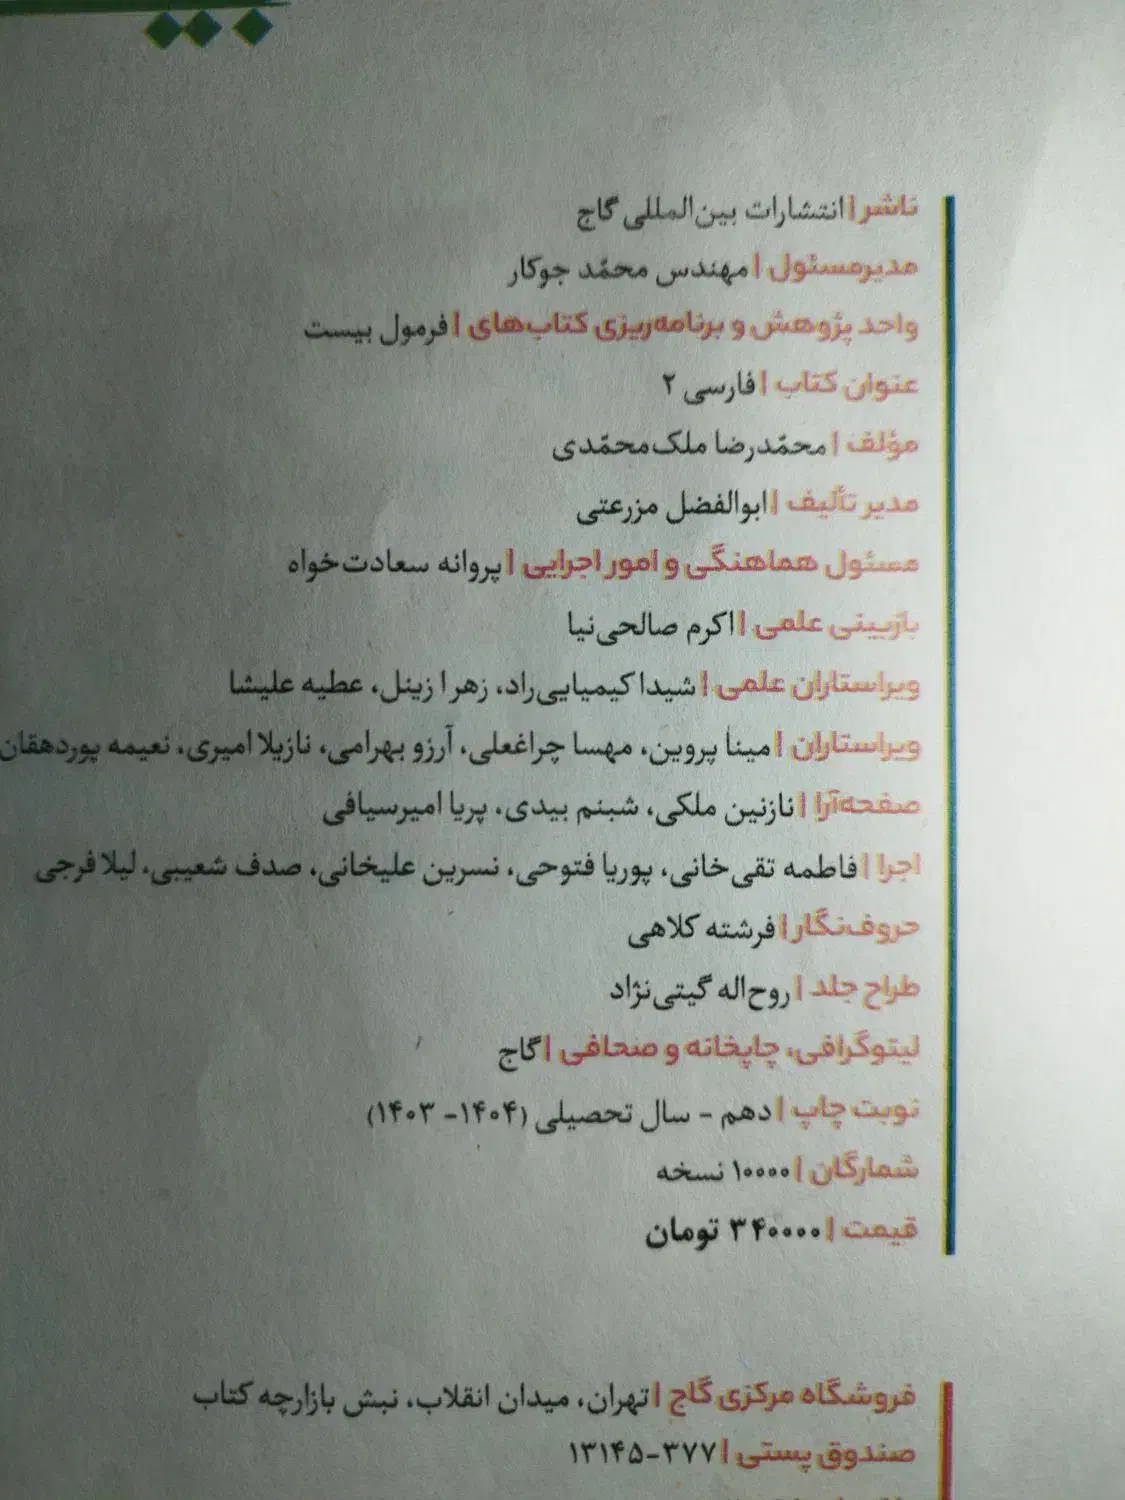 ناشر | انتشارات بین‌المللی گاج
مدیرمسئول | مهندس محمّد جوکار
واحد پژوهش و برنامه‌ریزی کتاب‌های | فرمول بیست
عنوان کتاب | فارسی ۲
مؤلف | محمّدرضا ملک‌محمّدی
مدیر تألیف | ابوالفضل مزرعتی
مسئول هماهنگی و امور اجرایی | پروانه سعادت‌خواه
بازبینی علمی | اکرم صالحی‌نیا
ویراستاران علمی | شیدا کیمیایی‌راد، زهرا زینل، عطیه علیشا
ویراستاران | مینا پروین، مهسا چراغعلی، آرزو بهرامی، نازیلا امیری، نعیمه پوردهقان
صفحه‌آرا | نازنین ملکی، شبنم بیدی، پریا امیرسیافی
اجرا | فاطمه تقی‌خانی، پوریا فتوحی، نسرین علیخانی، صدف شعیبی، لیلا فرجی
حروف‌نگار | فرشته کلاهی
طراح جلد | روح‌اله گیتی‌نژاد
لیتوگرافی، چاپخانه و صحافی | گاج
نوبت چاپ | دهم - سال تحصیلی (۱۴۰۴- ۱۴۰۳)
شمارگان | ۱۰۰۰۰ نسخه
قیمت | ۳۴۰۰۰۰ تومان
فروشگاه مرکزی گاج | تهران، میدان انقلاب، نبش بازارچه کتاب
صندوق پستی | ۳۷۷-۱۳۱۴۵